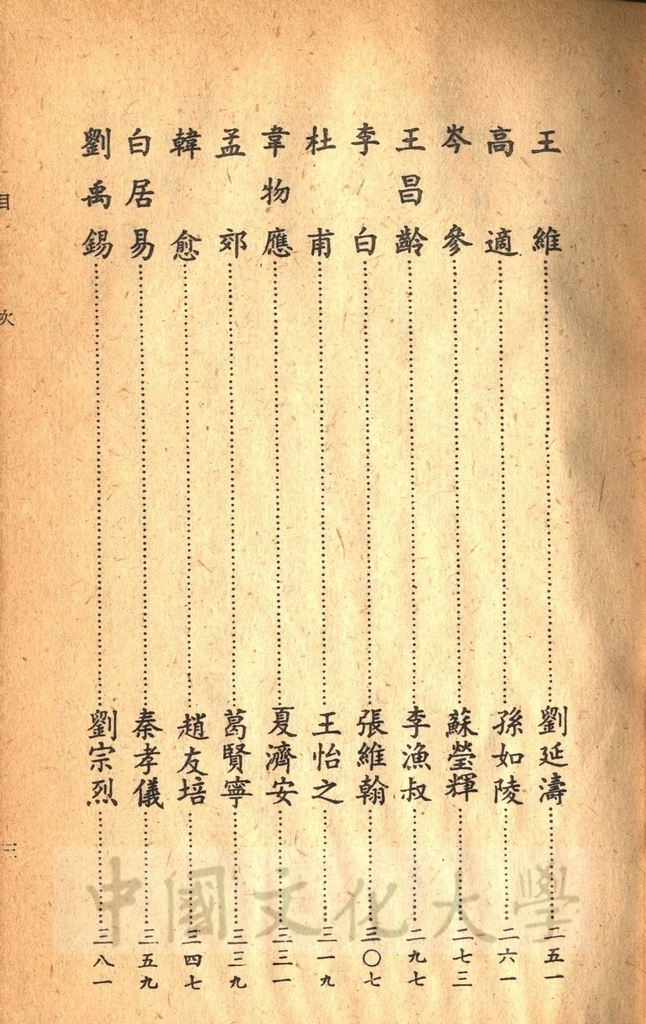 王維……劉延濤……二五一
高適……孫如陵……二六一
岑參……蘇瑩輝……二七三
王昌齡……李漁叔……二九七
李白……張維翰……三〇七
杜甫……王怡之……三一九
韋物應……夏濟安……三三一
孟郊……葛賢寧……三三九
韓愈……趙友培……三四七
白居易……秦孝儀……三五九
劉禹錫……劉宗烈……三八一
目次
三
中國文化大學